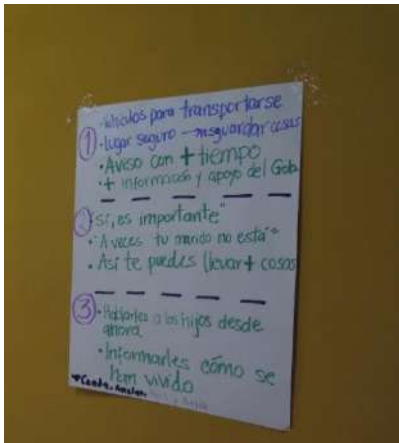 · Vehículos para transportarse
① · lugar seguro → resguardar cosas
· Aviso con + tiempo
· + información y apoyo del Gob.
② "Sí, es importante"
· "A veces tu marido no está"
· Así te puedes llevar + cosas
③ · Hablarles a los hijos desde
ahora
· Informarles cómo se
han vivido